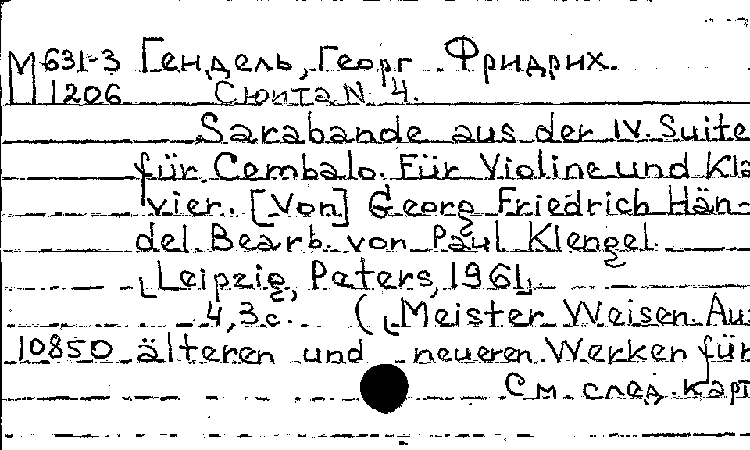 М631-3 Гендель, Георг Фридрих.
1206 Сюита N 4.
Sarabande aus der IV. Suite
für Cembalo. Für Violine und Kla
vier. [Von] Georg Friedrich Hän-
del. Bearb. von Paul Klengel.
[Leipzig, Peters, 1961]
4,3 с. ([Meister Weisen. Au
10850 älteren und neueren Werken für
См. след. карт